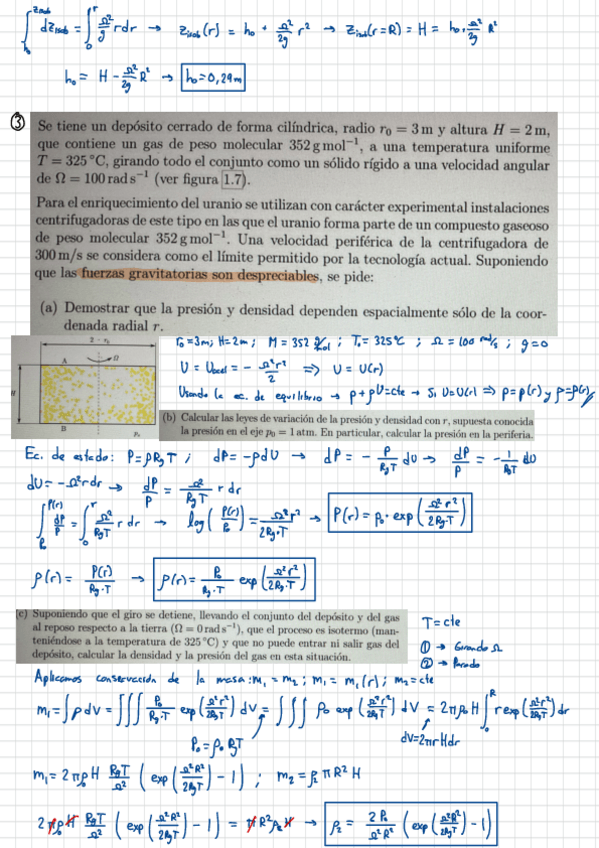 ∫_{h₀}^{z_isob} dz_isob = ∫₀^r Ω²/g r dr → z_isob(r) = h₀ + Ω²/2g r² → z_isob(r=R) = H = h₀ + Ω²/2g R²
h₀ = H - Ω²/2g R² → h₀ = 0,29m
③ Se tiene un depósito cerrado de forma cilíndrica, radio r₀ = 3 m y altura H = 2 m,
que contiene un gas de peso molecular 352 g mol⁻¹, a una temperatura uniforme
T = 325 °C, girando todo el conjunto como un sólido rígido a una velocidad angular
de Ω = 100 rad s⁻¹ (ver figura 1.7).
Para el enriquecimiento del uranio se utilizan con carácter experimental instalaciones
centrifugadoras de este tipo en las que el uranio forma parte de un compuesto gaseoso
de peso molecular 352 g mol⁻¹. Una velocidad periférica de la centrifugadora de
300 m/s se considera como el límite permitido por la tecnología actual. Suponiendo
que las fuerzas gravitatorias son despreciables, se pide:
(a) Demostrar que la presión y densidad dependen espacialmente sólo de la coor-
denada radial r.
2 · r₀
A
Ω
H
B
P₀
r₀=3m; H=2m; M=352 g/mol; T₀=325°C; Ω=100 rad/s; g=0
U = U_acel = - Ω²r²/2 ⇒ U = U(r)
Usando la ec. de equilibrio → p+ρU=cte → Si U=U(r) ⇒ p=p(r) y ρ=ρ(r)
(b) Calcular las leyes de variación de la presión y densidad con r, supuesta conocida
la presión en el eje p₀ = 1 atm. En particular, calcular la presión en la periferia.
Ec. de estado: P=ρRgT ; dP=-ρdU → dP = - P/RgT dU → dP/P = - 1/RgT dU
dU=-Ω²rdr → dP/P = Ω²/RgT r dr
∫_{P₀}^{P(r)} dP/P = ∫₀^r Ω²/RgT r dr → log(P(r)/P₀) = Ω²r²/2Rg·T → P(r) = P₀ · exp(Ω²r²/2Rg·T)
ρ(r) = P(r)/Rg·T → ρ(r) = P₀/Rg·T exp(Ω²r²/2Rg·T)
(c) Suponiendo que el giro se detiene, llevando el conjunto del depósito y del gas
al reposo respecto a la tierra (Ω = 0 rad s⁻¹), que el proceso es isotermo (man-
teniéndose a la temperatura de 325 °C) y que no puede entrar ni salir gas del
depósito, calcular la densidad y la presión del gas en esta situación.
T=cte
① → Girando Ω
② → Parado
Aplicamos conservación de la masa: m₁ = m₂ ; m₁ = m₁(r) ; m₂=cte
m₁=∫ρdV = ∫∫∫ P₀/Rg·T exp(Ω²r²/2RgT) dV = ∫∫∫ ρ₀ exp(Ω²r²/2RgT) dV = 2πρ₀H ∫₀^R r exp(Ω²r²/2RgT) dr
P₀=ρ₀ RgT
dV=2πrHdr
m₁ = 2πρ₀H RgT/Ω² (exp(Ω²R²/2RgT) - 1) ; m₂ = ρ₂ π R² H
2πρ₀H RgT/Ω² (exp(Ω²R²/2RgT) - 1) = π R² ρ₂ H → ρ₂ = 2P₀/Ω²R² (exp(Ω²R²/2RgT) - 1)